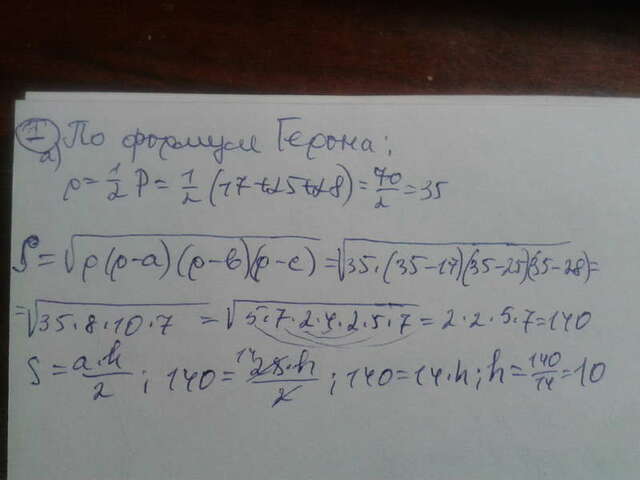 1 По формул Герона:
а)
p = 1/2 P = 1/2 (17+25+28) = 70/2 = 35
S = √p(p-a)(p-b)(p-c) = √35·(35-17)(35-25)(35-28) =
= √35·8·10·7 = √5·7·2·4·2·5·7 = 2·2·5·7 = 140
S = a·h/2 ; 140 = 14 28·h/2 ; 140 = 14·h ; h = 140/14 = 10